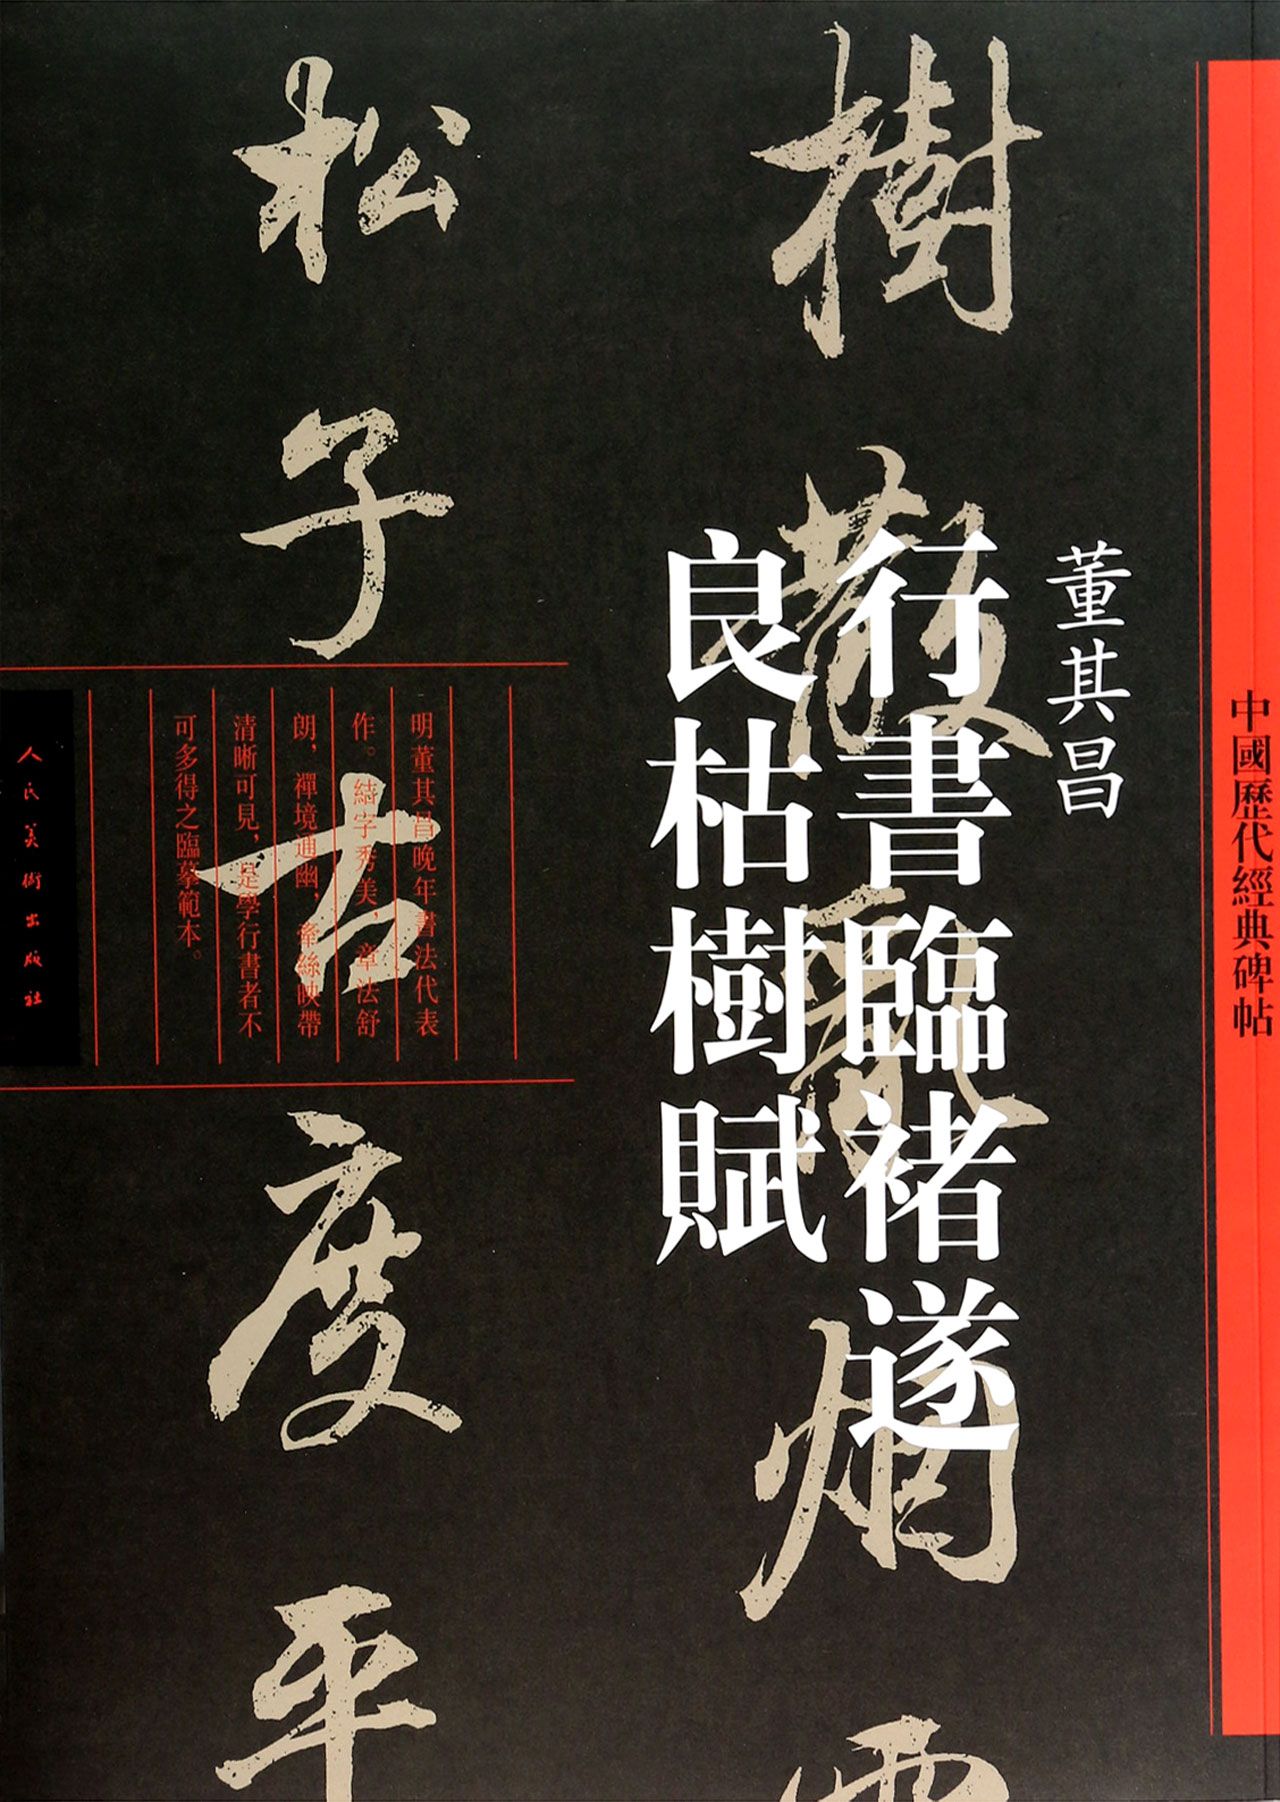 中國歷代經典碑帖
董其昌
行書臨褚遂
良枯樹賦
樹散亂烟
松子古度平
明董其昌晚年書法代表
作。結字秀美，章法舒
朗，禪境通幽，牽絲映帶
清晰可見，是學行書者不
可多得之臨摹範本。
人民美術出版社